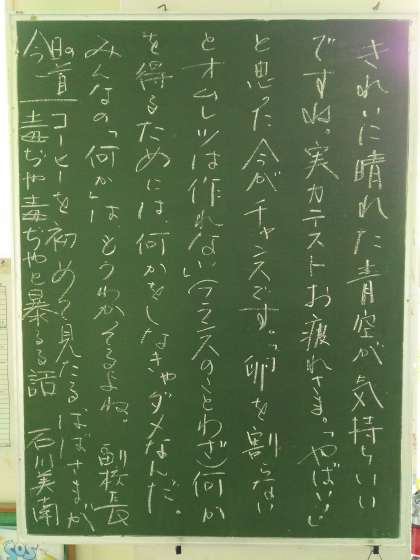 きれいに晴れた青空が気持ちいい
ですね。実力テストお疲れさま。「やばい!」
と思った今がチャンスです。「卵を割らない
とオムレツは作れない」(フランスのことわざ)何か
を得るためには、何かをしなきゃダメなんだ。
みんなの「何か」は、もうわかってるよね。 副校長
今日の一首 コーヒーを初めて見たるばばさまが
毒ぢや毒ぢやと暴るる話 石川美南